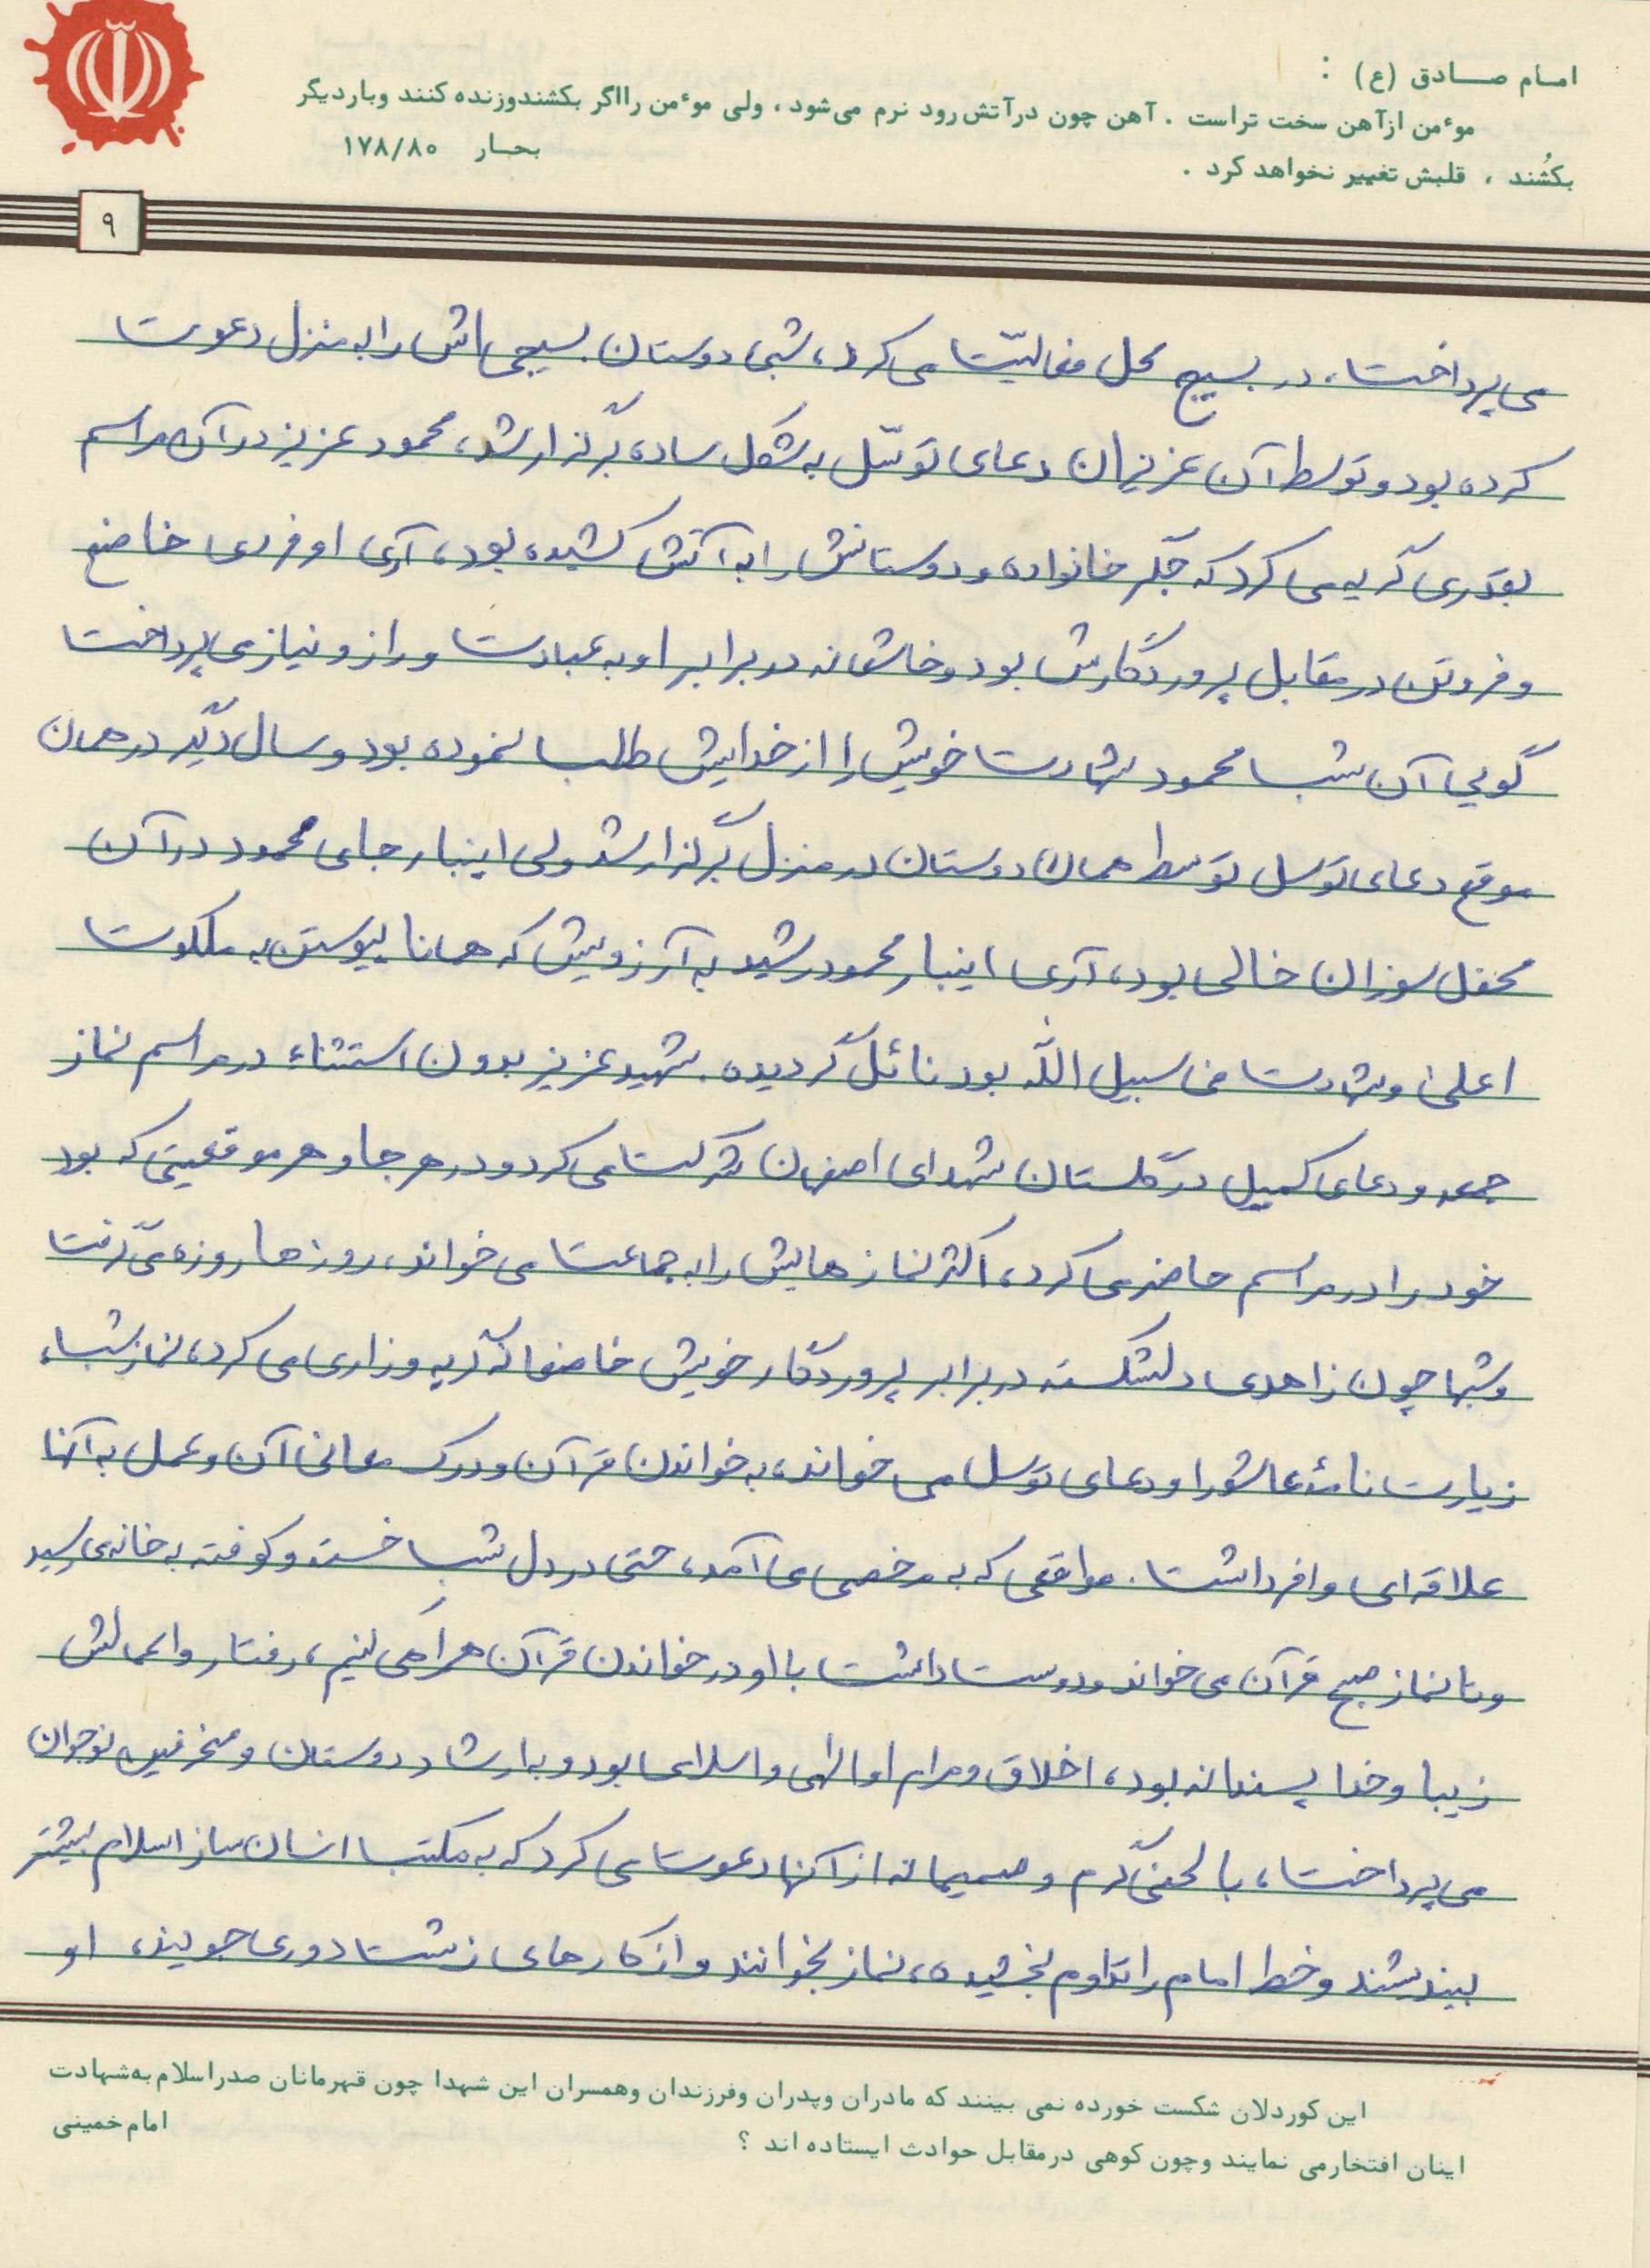 امام صادق (ع) :
موٴمن ازآهن سخت تراست . آهن چون درآتش رود نرم می‌شود ، ولی موٴمن رااگر بکشندوزنده کنند وباردیگر
بکُشند ، قلبش تغییر نخواهد کرد .
بحار ۱۷۸/۸۰
۹
می‌پرداخت، در بسیج محل فعالیّت می‌کرد، شبی دوستان بسیجی‌اش را به منزل دعوت
کرده بود و توسط آن عزیزان دعای توسّل به شکل ساده برگزار شد، محمود عزیز در آن مراسم
بقدری گریه می‌کرد که جگر خانواده و دوستانش را به آتش کشیده بود، آری او فردی خاضع
و فروتن در مقابل پروردگارش بود و خاشعانه در برابر او به عبادت و راز و نیاز می‌پرداخت
گویی آن شب محمود شهادت خویش را از خدایش طلب نموده بود و سال دیگر در همان
موقع دعای توسل توسط همان دوستان در منزل برگزار شد ولی اینبار جای محمود در آن
محفل سوزان خالی بود، آری اینبار محمود رشید به آرزویش که همانا پیوستن به ملکوت
اعلیٰ و شهادت فی سبیل اللّه بود نائل گردیده. شهید عزیز بدون استثناء در مراسم نماز
جمعه و دعای کمیل در گلستان شهدای اصفهان شرکت می‌کرد و در هر جا و هر موقعیتی که بود
خود را در مراسم حاضر می‌کرد، اکثر نمازهایش را به جماعت می‌خواند، روزها روزه می‌گرفت
و شبها چون زاهدی دلشکسته در برابر پروردگار خویش خاضعانه گریه و زاری می‌کرد، نماز شب،
زیارت نامهٔ عاشورا و دعای توسل می‌خواند، به خواندن قرآن و درک معانی آن و عمل به آنها
علاقه‌ای وافر داشت. مواقعی که به مرخصی می‌آمد، حتی در دل شب خسته و کوفته به خانه می‌رسید
و تا نماز صبح قرآن می‌خواند و دوست داشت با او در خواندن قرآن همراهی کنیم، رفتار و اعمالش
زیبا و خدا پسندانه بود، اخلاق و مرام او الهی و اسلامی بود و به ارشاد دوستان و منحرفین نوجوان
می‌پرداخت، با لحنی گرم و صمیمانه از آنها دعوت می‌کرد که به مکتب انسان ساز اسلام بیشتر
بیندیشند و خط امام را تداوم بخشیده، نماز بخوانند و از کارهای زشت دوری جویند، او
این کوردلان شکست خورده نمی بینند که مادران وپدران وفرزندان وهمسران این شهدا چون قهرمانان صدراسلام به‌شهادت
اینان افتخارمی نمایند وچون کوهی درمقابل حوادث ایستاده اند ؟
امام خمینی